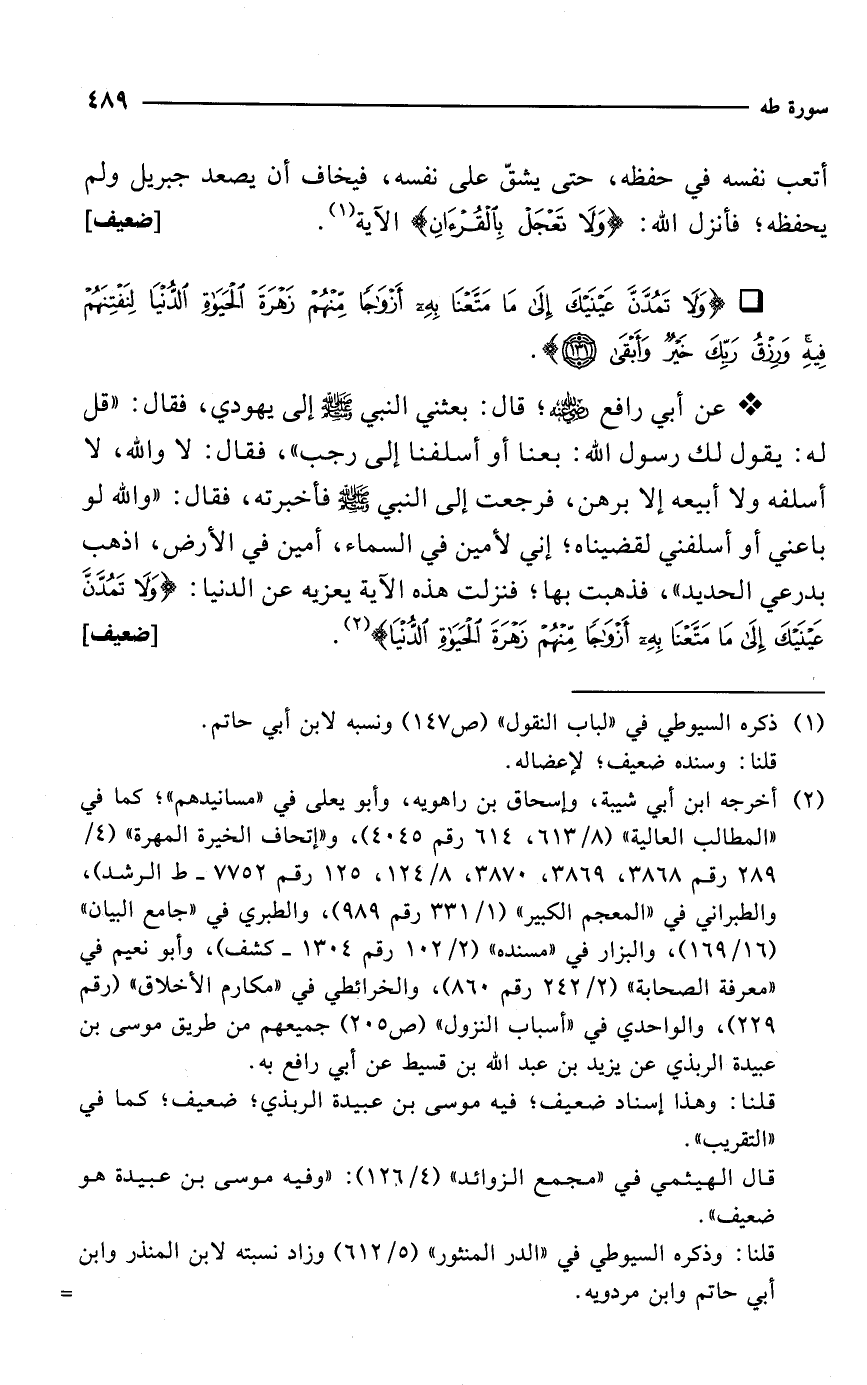 سورة طه ٤٨٩
أتعب نفسه في حفظه، حتى يشقّ على نفسه، فيخاف أن يصعد جبريل ولم
يحفظه؛ فأنزل الله: ﴿وَلَا تَعْجَلْ بِالْقُرْءَانِ﴾ الآية(١). [ضعيف]
❑ ﴿وَلَا تَمُدَّنَّ عَيْنَيْكَ إِلَى مَا مَتَّعْنَا بِهِۦٓ أَزْوَٰجًا مِّنْهُمْ زَهْرَةَ الْحَيَوٰةِ الدُّنْيَا لِنَفْتِنَهُمْ
فِيهِ وَرِزْقُ رَبِّكَ خَيْرٌ وَأَبْقَىٰ ﴿١٣١﴾﴾.
❖ عن أبي رافع رضي الله عنه؛ قال: بعثني النبي ﷺ إلى يهودي، فقال: «قل
له: يقول لك رسول الله: بعنا أو أسلفنا إلى رجب»، فقال: لا والله، لا
أسلفه ولا أبيعه إلا برهن، فرجعت إلى النبي ﷺ فأخبرته، فقال: «والله لو
باعني أو أسلفني لقضيناه؛ إني لأمين في السماء، أمين في الأرض، اذهب
بدرعي الحديد»، فذهبت بها؛ فنزلت هذه الآية يعزيه عن الدنيا: ﴿وَلَا تَمُدَّنَّ
عَيْنَيْكَ إِلَى مَا مَتَّعْنَا بِهِۦٓ أَزْوَٰجًا مِّنْهُمْ زَهْرَةَ الْحَيَوٰةِ الدُّنْيَا﴾(٢). [ضعيف]
(١) ذكره السيوطي في «لباب النقول» (ص١٤٧) ونسبه لابن أبي حاتم.
قلنا: وسنده ضعيف؛ لإعضاله.
(٢) أخرجه ابن أبي شيبة، وإسحاق بن راهويه، وأبو يعلى في «مسانيدهم»؛ كما في
«المطالب العالية» (٨/ ٦١٣، ٦١٤ رقم ٤٠٤٥)، و«إتحاف الخيرة المهرة» (٤/
٢٨٩ رقم ٣٨٦٨، ٣٨٦٩، ٣٨٧٠، ٨/ ١٢٤، ١٢٥ رقم ٧٧٥٢ ـ ط الرشد)،
والطبراني في «المعجم الكبير» (١/ ٣٣١ رقم ٩٨٩)، والطبري في «جامع البيان»
(١٦/ ١٦٩)، والبزار في «مسنده» (٢/ ١٠٢ رقم ١٣٠٤ ـ كشف)، وأبو نعيم في
«معرفة الصحابة» (٢/ ٢٤٢ رقم ٨٦٠)، والخرائطي في «مكارم الأخلاق» (رقم
٢٢٩)، والواحدي في «أسباب النزول» (ص٢٠٥) جميعهم من طريق موسى بن
عبيدة الربذي عن يزيد بن عبد الله بن قسيط عن أبي رافع به.
قلنا: وهذا إسناد ضعيف؛ فيه موسى بن عبيدة الربذي؛ ضعيف؛ كما في
«التقريب».
قال الهيثمي في «مجمع الزوائد» (٤/ ١٢٦): «وفيه موسى بن عبيدة هو
ضعيف».
قلنا: وذكره السيوطي في «الدر المنثور» (٥/ ٦١٢) وزاد نسبته لابن المنذر وابن
أبي حاتم وابن مردويه. =